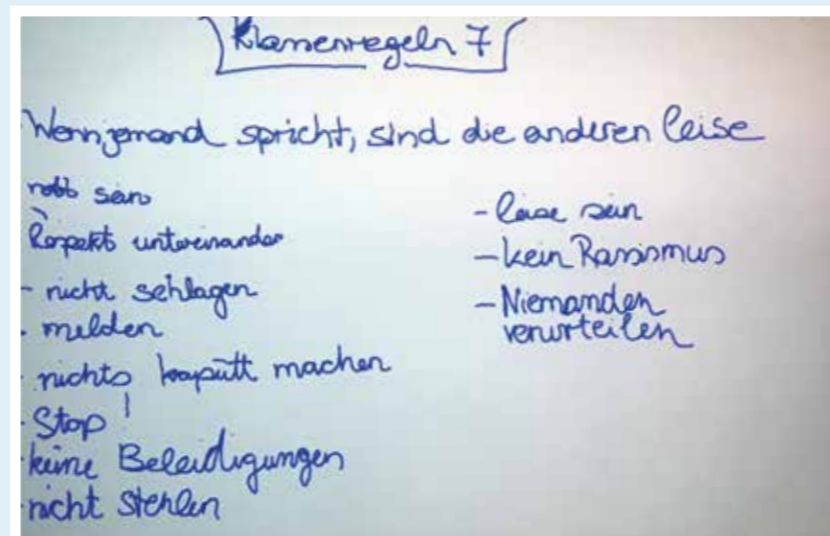 Klassenregeln 7
Wenn jemand spricht, sind die anderen leise
nett sein
Respekt untereinander
- nicht schlagen
- melden
- nichts kaputt machen
- Stop!
- keine Beleidigungen
- nicht stehlen
- leise sein
- kein Rassismus
- Niemanden
verurteilen